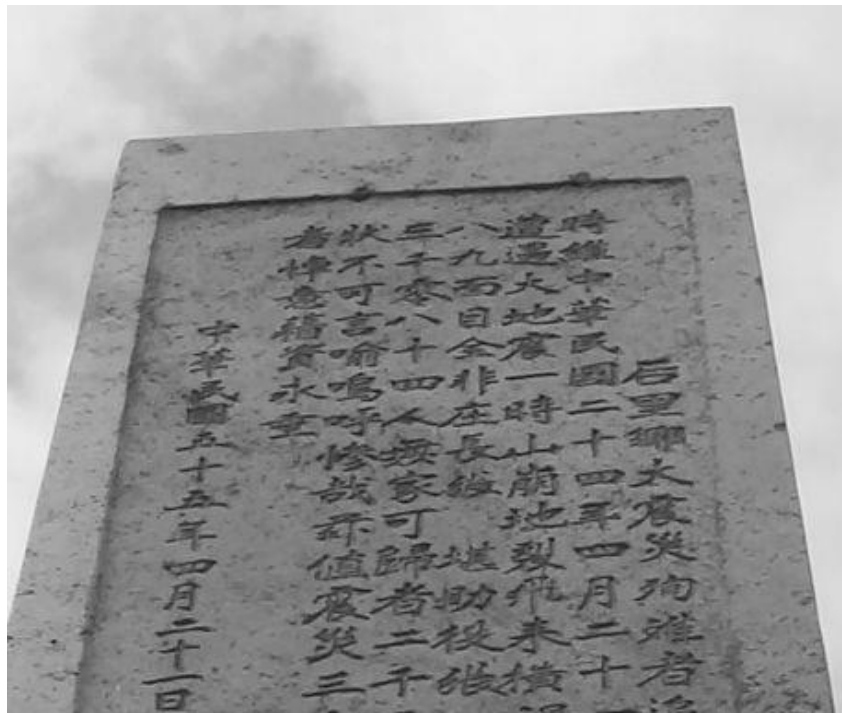 后里鄉大震災殉難者追
時維中華民國二十四年四月二十一
遭遇大地震一時山崩地裂飛來橫禍
八九面目全非庄長張 堪助役張
三千零八十四人無家可歸者二千
狀不可言喻嗚呼慘哉茲值震災三
者悼意禱冀永垂
中華民國五十五年四月二十一日